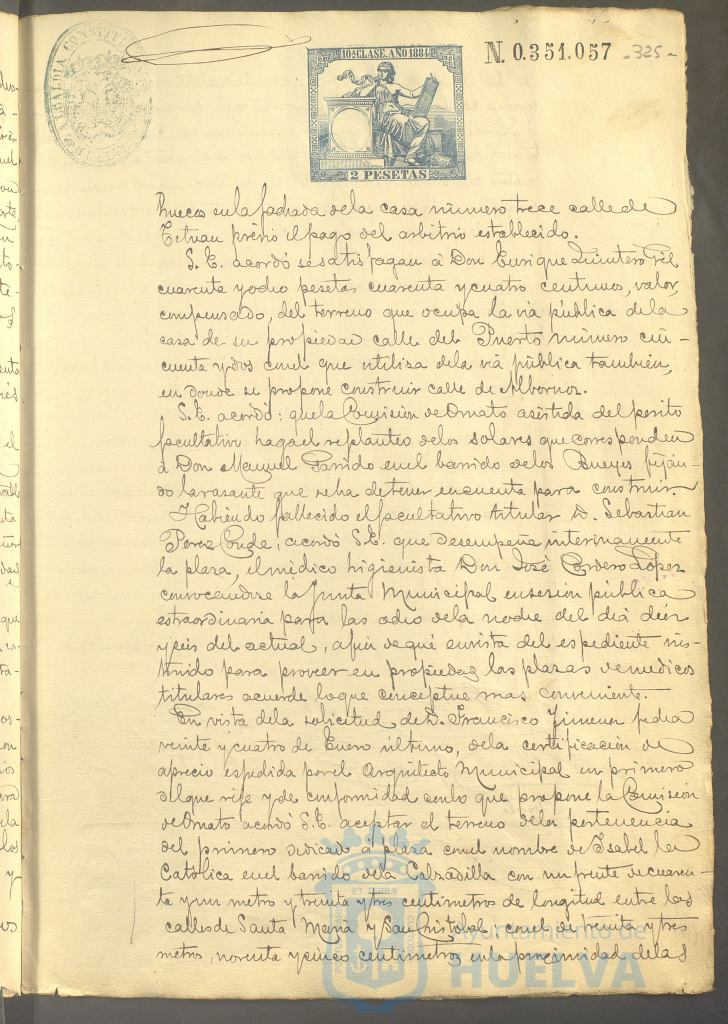 ALCALDIA CONSTIT
10ª CLASE. AÑO 1884
2 PESETAS
N. 0.351.057 -325-
huecos en la fachada de la casa número trece calle de
Tetuan prévio el pago del arbitrio establecido.
S. E. acordó se satisfagan á Don Enrique Quintero Gil
cuarenta y ocho pesetas cuarenta y cuatro centimos, valor,
compensado, del terreno que ocupa la via pública de la
casa de su propiedad calle del Puerto número cin-
cuenta y dos con el que utiliza de la via pública tambien,
en donde se propone construir calle de Albornoz.
S. E. acordó: que la Comisión de Ornato asistida del perito
facultativo haga el replanteo de los solares que corresponden
á Don Manuel Garrido en el barrido de los Bueyes fiján-
do la rasante que se ha de tener en cuenta para construir.
Habiendo fallecido el facultativo titular D. Sebastian
Perez Conde, acordó S. E. que desempeñe interinamente
la plaza, el médico higienista Don José Cordero López
convocandose la Junta Municipal en sesión pública
extraordinaria para las ocho de la noche del dia diez
y seis del actual, a fin de que en vista del espediente ins-
truido para proveer en propiedad las plazas de medicos
titulares acuerde lo que conceptue mas conveniente.
En vista de la solicitud de D. Francisco Jimenez fecha
veinte y cuatro de Enero último, de la certificación de
aprecio espedida por el Arquitecto Municipal en primero
del que rije y de conformidad con lo que propone la Comisión
de Ornato acordó S. E. aceptar el terreno de la pertenencia
del primero dedicado á plaza con el nombre de Isabel la
Católica en el barrido de la Calzadilla con un frente de cuaren-
ta y un metro y treinta y tres centimetros de longitud entre las
calles de Santa Maria y San Cristobal con el de treinta y tres
metros, noventa y cinco centimetros en la proximidad de las
Ayuntamiento de
HUELVA